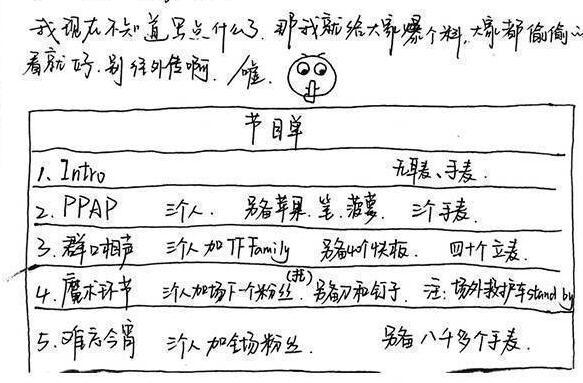 我现在不知道写点什么了,那我就给大家爆个料,大家都偷偷
看就好,别往外传啊,嘘.
节目单
1. Intro 无耳麦、手麦.
2. PPAP 三个人. 另备苹果.笔.菠萝. 三个手麦.
3. 群口相声 三个人加TF Family 另备40个快板. 四十个立麦.
4. 魔术环节 三个人加场下一个粉丝(托).另备刀和钉子. 注:场外救护车stand by
5. 难忘今宵 三个人加全场粉丝. 另备八千多个手麦.